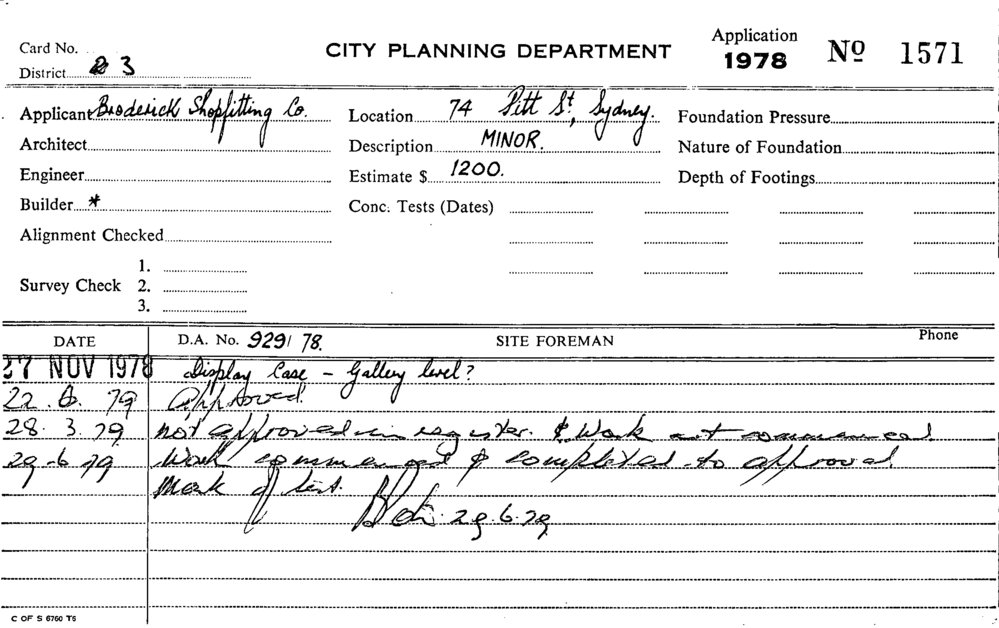 Card No.
CITY PLANNING DEPARTMENT
Application 1978 No 1571
District 3
Applicant Broderick Shopfitting Co.
Location 74 Pitt St, Sydney.
Foundation Pressure
Architect
Description MINOR.
Nature of Foundation
Engineer
Estimate $ 1200.
Depth of Footings
Builder *
Conc. Tests (Dates)
Alignment Checked
Survey Check 1.
2.
3.
DATE
D.A. No. 929/ 78.
SITE FOREMAN
Phone
27 NOV 1978 Display Case - Gallery level?
22. 79 Approved.
28. 3. 79 not approved in register. & Work not commenced
29-6 79 Work commenced & completed to approval.
Mark of list.
29.6.79
C OF S 6760 T5